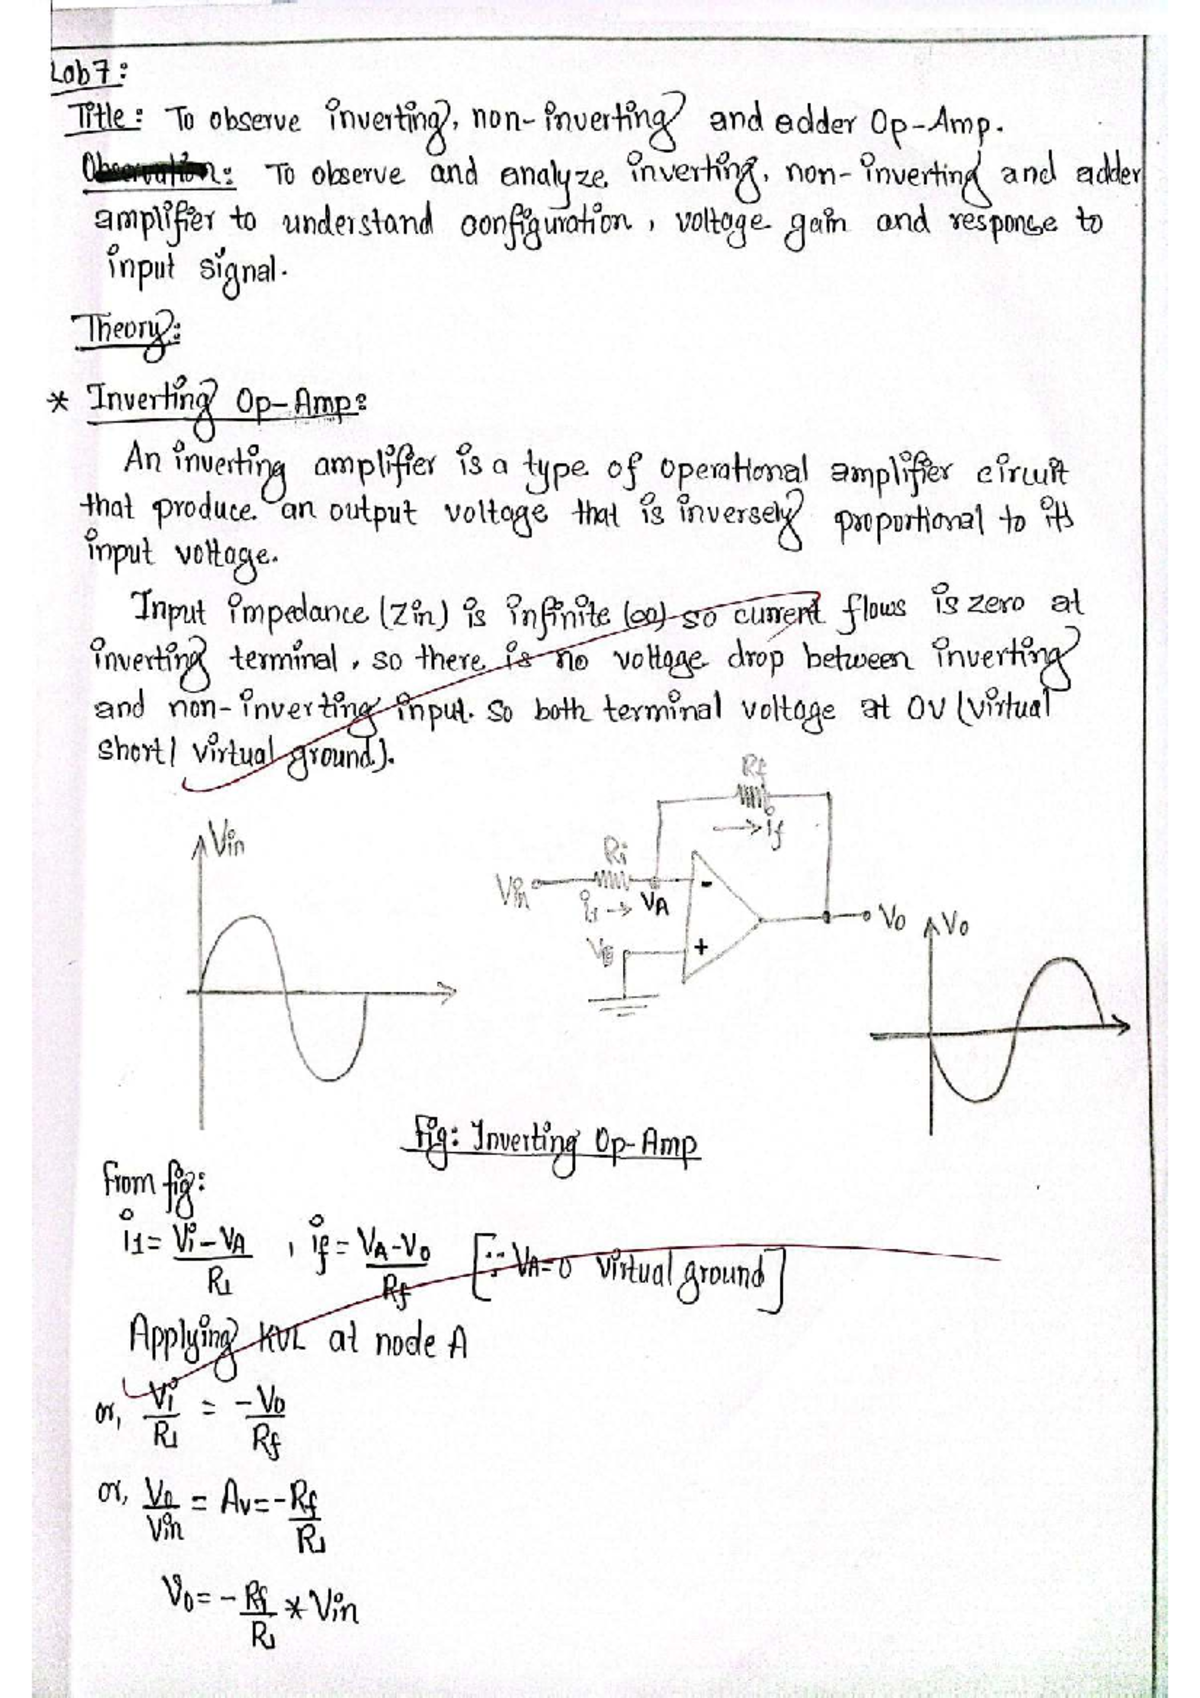 Lab7:
Title: To observe inverting, non-inverting and adder Op-Amp.
Observation: To observe and analyze inverting, non-inverting and adder
amplifier to understand configuration, voltage gain and response to
input signal.
Theory:
* Inverting Op-Amp:
An inverting amplifier is a type of operational amplifier circuit
that produce an output voltage that is inversely proportional to its
input voltage.
Input impedance (Zin) is infinite (∞) so current flows is zero at
inverting terminal, so there is no voltage drop between inverting
and non-inverting input. So both terminal voltage at 0V (Virtual
short/ virtual ground).
Rf
if
Vin
Ri
Vin
i1 → VA
Vo
Vo
-
+
Fig: Inverting Op-Amp
From fig:
i1 = Vi-VA / R1 , if = VA-Vo / Rf [∵ VA=0 virtual ground]
Applying KVL at node A
or, Vi/R1 = -Vo/Rf
or, Vo/Vin = Av = -Rf/R1
Vo = -Rf/R1 * Vin